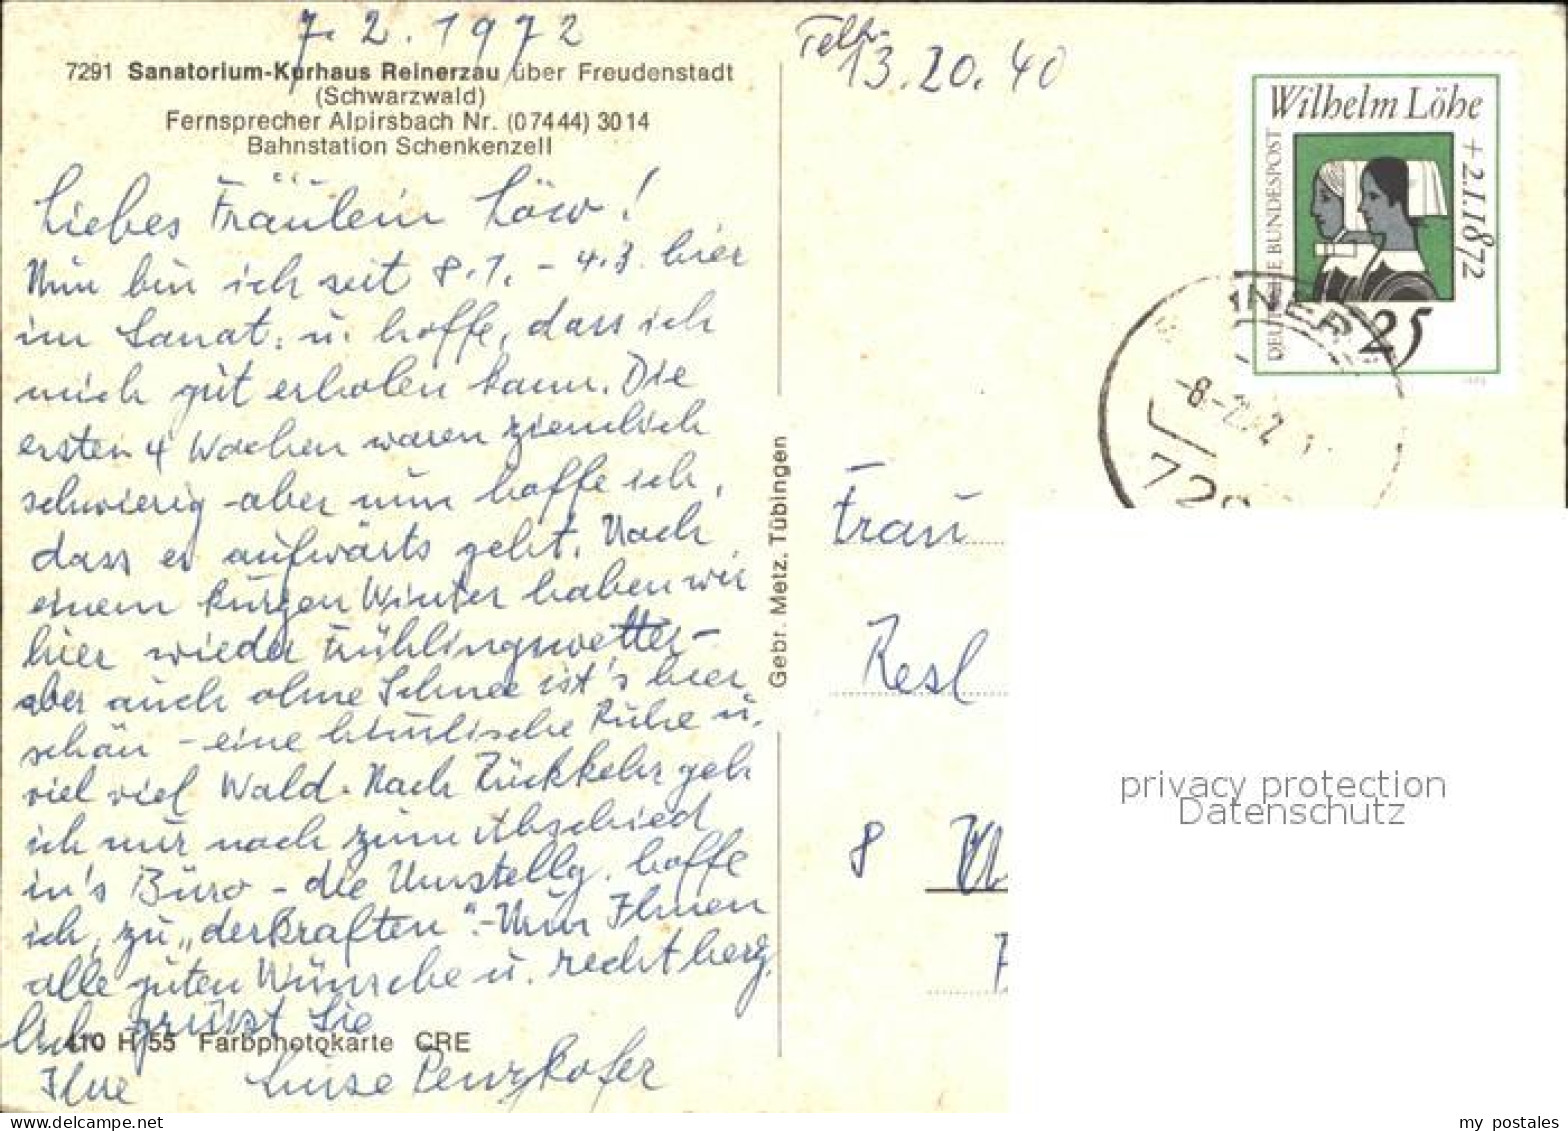 7.2.1972
7291 Sanatorium-Kurhaus Reinerzau über Freudenstadt
(Schwarzwald)
Fernsprecher Alpirsbach Nr. (07444) 3014
Bahnstation Schenkenzell
Liebes Fräulein Löw!
Nun bin ich seit 8.1. - 4.3. hier
im Sanat. u. hoffe, dass ich
mich gut erholen kann. Die
ersten 4 Wochen waren ziemlich
schwierig - aber nun hoffe ich,
dass es aufwärts geht. Nach
einem kurzen Winter haben wir
hier wieder Frühlingswetter-
aber auch ohne Schnee ist's hier
schön - eine himmlische Ruhe u.
viel viel Wald. Nach Rückkehr geh
ich nur noch zum Abschied
in's Büro - die Umstellg. hoffe
ich, zu „derkraften". - Nun Ihnen
alle guten Wünsche u. recht herz-
lich grüsst Sie
410 H 55 Farbphotokarte CRE
Ihre Luise Penzkofer
Gebr. Metz, Tübingen
13.20.40
Wilhelm Löhe
+2.1.1872
DEUTSCHE BUNDESPOST
25
-8.-2.
Frau
Resl
8
privacy protection
Datenschutz
my_postales
www.delcampe.net